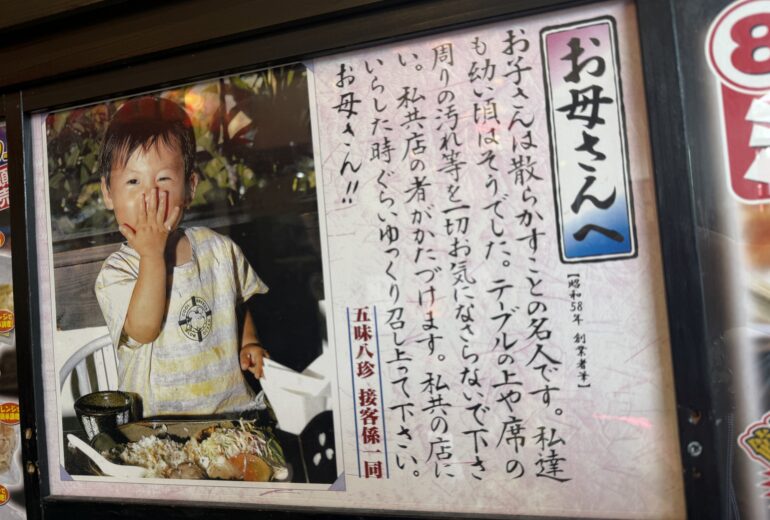 お母さんへ
【昭和58年 創業者筆】
お子さんは散らかすことの名人です。私達
も幼い頃はそうでした。テーブルの上や席の
周りの汚れ等を一切お気になさらないで下さ
い。私共店の者がかたづけます。私共の店に
いらした時ぐらいゆっくり召し上って下さい。
お母さん!!
五味八珍 接客係一同